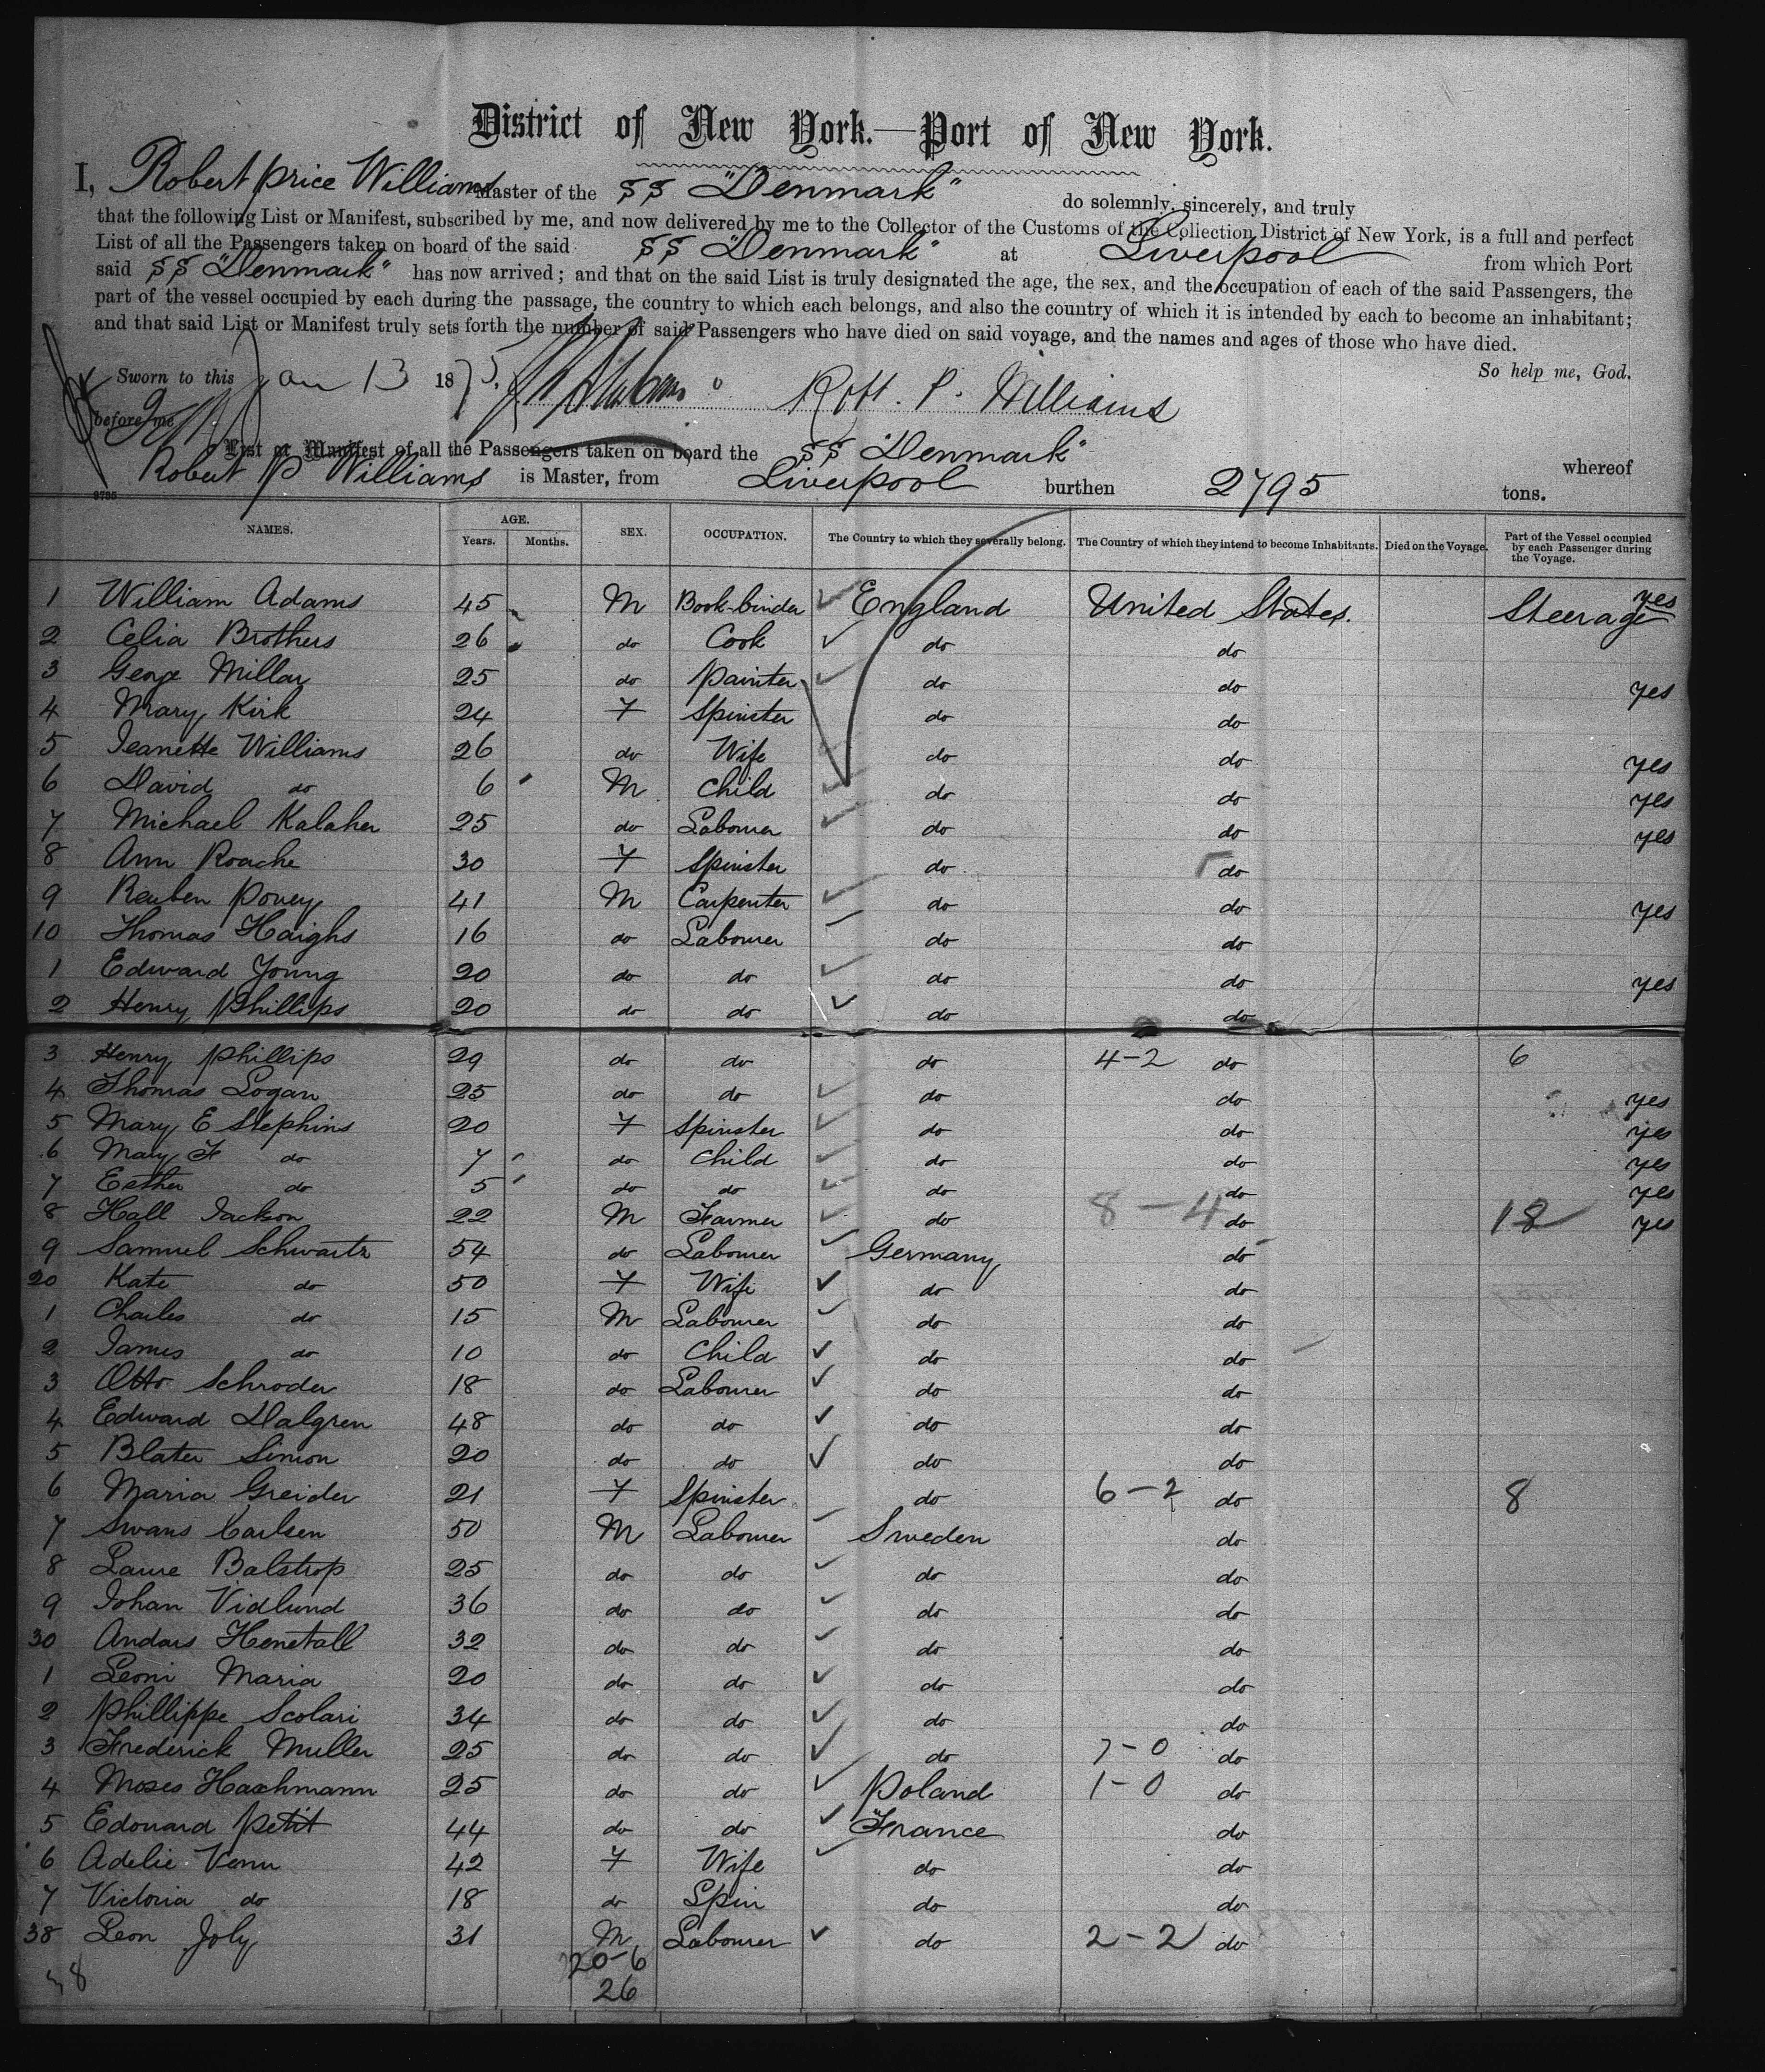 District of New York.—Port of New York.
I, Robert price Williams Master of the SS "Denmark" do solemnly, sincerely, and truly
that the following List or Manifest, subscribed by me, and now delivered by me to the Collector of the Customs of the Collection District of New York, is a full and perfect
List of all the Passengers taken on board of the said SS "Denmark" at Liverpool from which Port
said SS "Denmark" has now arrived; and that on the said List is truly designated the age, the sex, and the occupation of each of the said Passengers, the
part of the vessel occupied by each during the passage, the country to which each belongs, and also the country of which it is intended by each to become an inhabitant;
and that said List or Manifest truly sets forth the number of said Passengers who have died on said voyage, and the names and ages of those who have died.
So help me, God.
Sworn to this Jan 13 1875.
Robt. P. Williams
before me
List or Manifest of all the Passengers taken on board the SS "Denmark" whereof
Robert P Williams is Master, from Liverpool burthen 2795 tons.
9735
NAMES. AGE. Years. Months. SEX. OCCUPATION. The Country to which they severally belong. The Country of which they intend to become Inhabitants. Died on the Voyage. Part of the Vessel occupied by each Passenger during the Voyage.
1 William Adams 45 M Book-binder England United States. Steerage yes
2 Celia Brothers 26 do Cook do do
3 George Millar 25 do painter do do yes
4 Mary Kirk 24 F Spinster do do
5 Jeanette Williams 26 do Wife do do yes
6 David do 6 M Child do do yes
7 Michael Kalaher 25 do Labourer do do yes
8 Ann Roache 30 F Spinster do do
9 Reuben Povey 41 M Carpenter do do yes
10 Thomas Haighs 16 do Labourer do do
1 Edward Young 20 do do do do yes
2 Henry Phillips 20 do do do do
3 Henry Phillips 29 do do do 4-2 do 6
4 Thomas Logan 25 do do do do yes
5 Mary E Stephins 20 F Spinster do do yes
6 Mary F do 7 do Child do do yes
7 Esther do 5 do do do do yes
8 Hall Jackson 22 M Farmer do 8-4 do 12 yes
9 Samuel Schwartz 54 do Labourer Germany do
20 Kate do 50 F Wife do do
1 Charles do 15 M Labourer do do
2 James do 10 do Child do do
3 Otto Schroder 18 do Labourer do do
4 Edward Dalgren 48 do do do do
5 Blater Simon 20 do do do do
6 Maria Greider 21 F Spinster do 6-2 do 8
7 Swans Carlsen 50 M Labourer Sweden do
8 Laure Balstrop 25 do do do do
9 Johan Vidlund 36 do do do do
30 Andars Henetall 32 do do do do
1 Leoni Maria 20 do do do do
2 Phillippe Scolari 34 do do do do
3 Frederick Muller 25 do do do 7-0 do
4 Moses Haschmann 25 do do Poland 1-0 do
5 Edouard Petit 44 do do France do
6 Adelie Venu 42 F Wife do do
7 Victoria do 18 do Spin do do
38 Leon Joly 31 M Labourer do 2-2 do
20-6
26